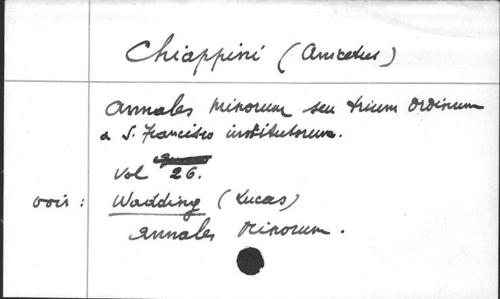 Chiappini (Anicetus)
Annales Minorum seu trium Ordinum
a S. Francisco institutorum.
Vol 26.
voir : Wadding (Lucas)
Annales Minorum.